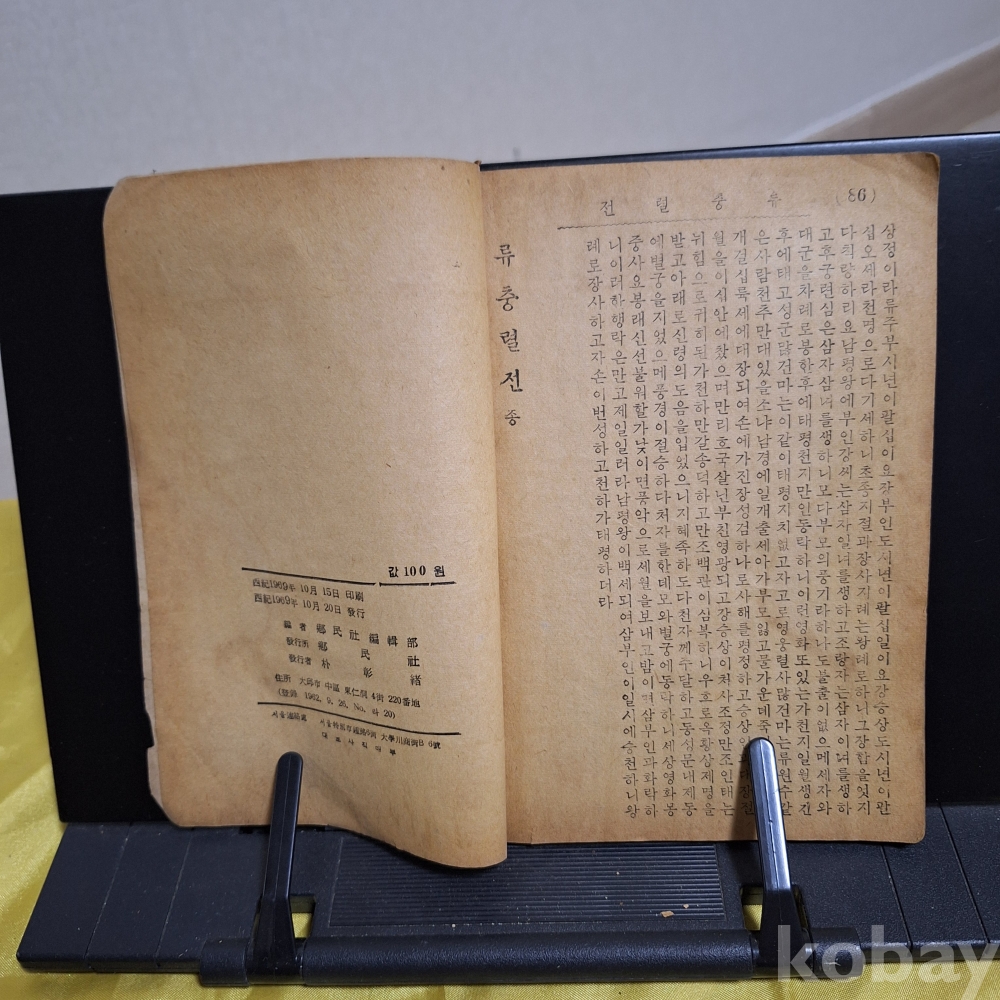 (86) 류 충 렬 전
상정이라류주부시년이팔십이요장부인도시년이팔십일이요강승상도시년이판
십오세라천명으로다기세하니초종지절과장사지례는왕례로하니그장합을엇지
다칙량하리요남평왕에부인강씨는삼자일녀를생하고조랑자는삼자이녀를생하
고후궁련심은삼자삼녀를생하니모다부모의풍기라하나도불출이없으메세자와
대군을차례로봉한후에태평천지만인동락하니이런영화또있는가천지일월생긴
후에태고성군많건마는이같이태평지치없고자고로영웅렬사많건마는류원수같
은사람천추만대있을소냐남경에일개출세아가부모잃고물가운데죽
개걸십륙세에대장되여손에가진장성검하나로사해를평정하고승상
월을이십안에찼으며만리호국살닌부친영광되고강승상이처사조정만조인태는
뉘힘으로귀히된가천하만갈송덕하고만조백관이심복하니우흐로옥황상제명을
밤고아래로신령의도음을입었으니지혜족하도다천자께주달하고동성문내제동
에별궁을지었으메풍경이절승하다처자를한데모와별궁에동락하니세상영화몽
중사요봉래신선불워할가낮이면풍악으로세월을보내고밤이면삼부인과화락하
니이러하행락은만고제일일러라남평왕이백세되여삼부인이일시에승천하니왕
례로장사하고자손이번성하고천하가태평하더라
류충렬전 종
값 100 원
西紀1969年 10月 15日 印刷
西紀1969年 10月 20日 發行
編者 鄕民社編輯部
發行所 鄕民社
發行者 朴彰緖
住所 大邱市 中區 東仁洞 4街 220番地
(登錄 1962. 9. 26. No. 라 20)
서울連絡處 서울特別市鍾路6街 大學川商街B 6號
kobay